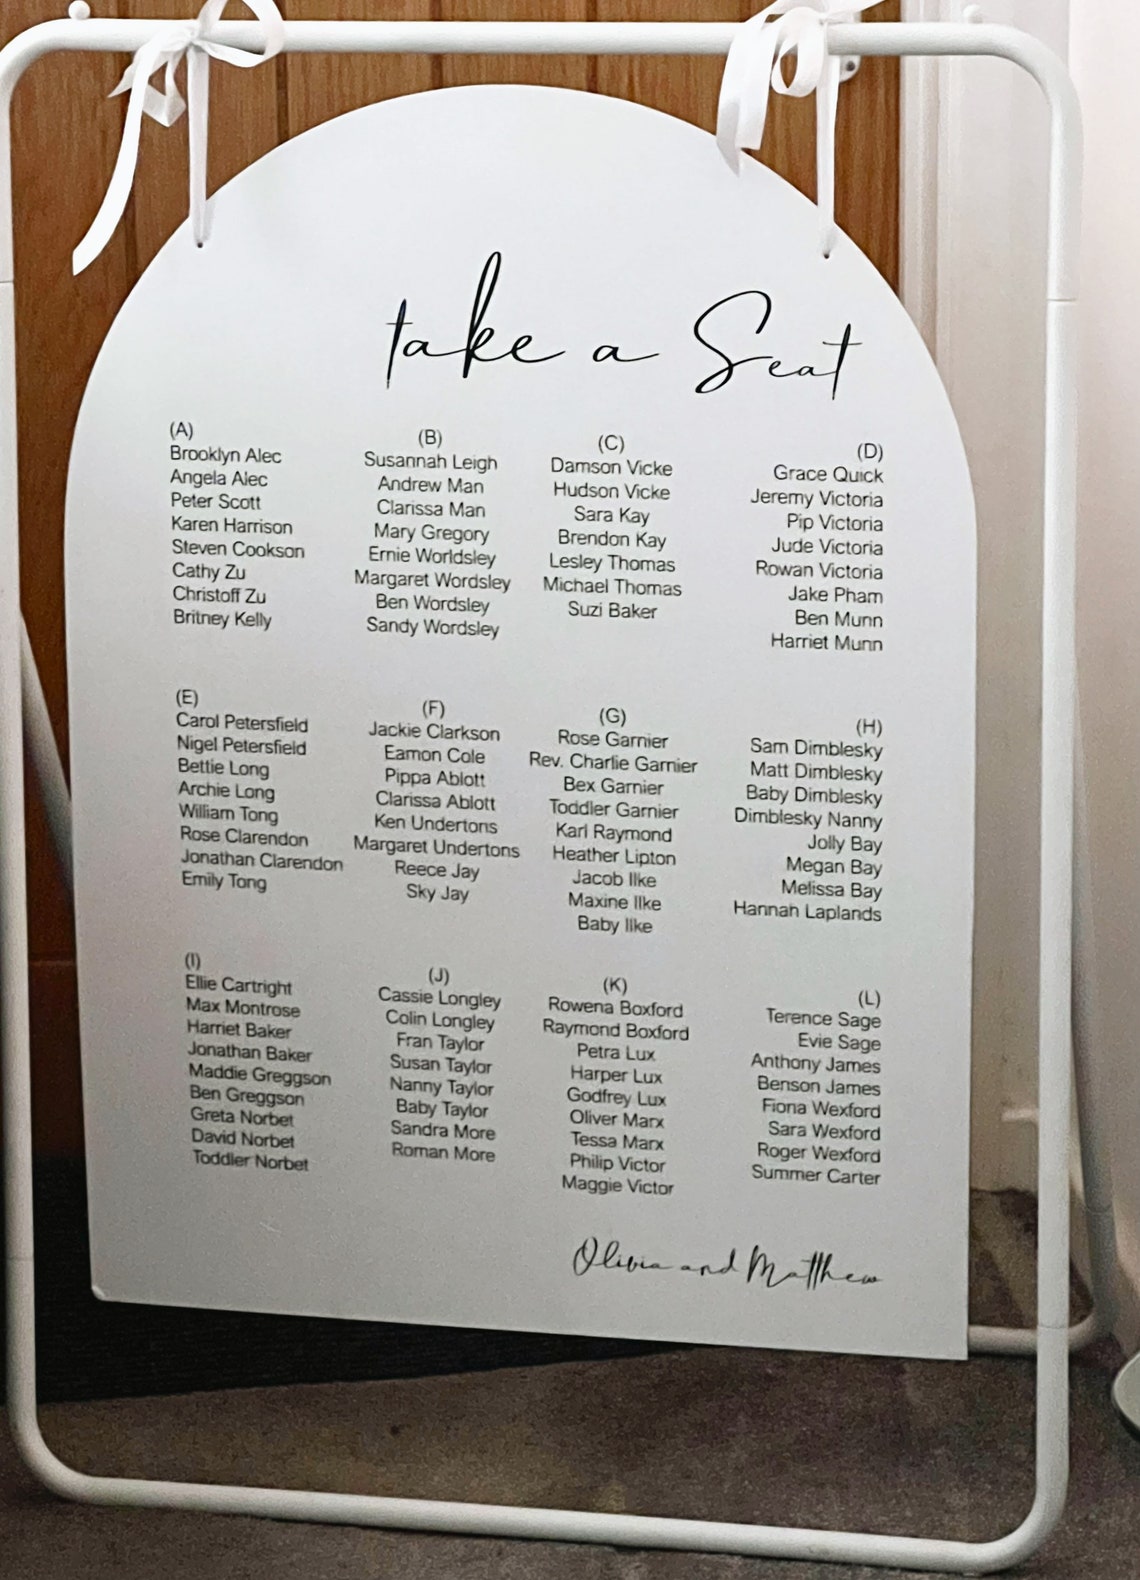 take a Seat
(A)
Brooklyn Alec
Angela Alec
Peter Scott
Karen Harrison
Steven Cookson
Cathy Zu
Christoff Zu
Britney Kelly
(B)
Susannah Leigh
Andrew Man
Clarissa Man
Mary Gregory
Ernie Worldsley
Margaret Wordsley
Ben Wordsley
Sandy Wordsley
(C)
Damson Vicke
Hudson Vicke
Sara Kay
Brendon Kay
Lesley Thomas
Michael Thomas
Suzi Baker
(D)
Grace Quick
Jeremy Victoria
Pip Victoria
Jude Victoria
Rowan Victoria
Jake Pham
Ben Munn
Harriet Munn
(E)
Carol Petersfield
Nigel Petersfield
Bettie Long
Archie Long
William Tong
Rose Clarendon
Jonathan Clarendon
Emily Tong
(F)
Jackie Clarkson
Eamon Cole
Pippa Ablott
Clarissa Ablott
Ken Undertons
Margaret Undertons
Reece Jay
Sky Jay
(G)
Rose Garnier
Rev. Charlie Garnier
Bex Garnier
Toddler Garnier
Karl Raymond
Heather Lipton
Jacob Ilke
Maxine Ilke
Baby Ilke
(H)
Sam Dimblesky
Matt Dimblesky
Baby Dimblesky
Dimblesky Nanny
Jolly Bay
Megan Bay
Melissa Bay
Hannah Laplands
(I)
Ellie Cartright
Max Montrose
Harriet Baker
Jonathan Baker
Maddie Greggson
Ben Greggson
Greta Norbet
David Norbet
Toddler Norbet
(J)
Cassie Longley
Colin Longley
Fran Taylor
Susan Taylor
Nanny Taylor
Baby Taylor
Sandra More
Roman More
(K)
Rowena Boxford
Raymond Boxford
Petra Lux
Harper Lux
Godfrey Lux
Oliver Marx
Tessa Marx
Philip Victor
Maggie Victor
(L)
Terence Sage
Evie Sage
Anthony James
Benson James
Fiona Wexford
Sara Wexford
Roger Wexford
Summer Carter
Olivia and Matthew